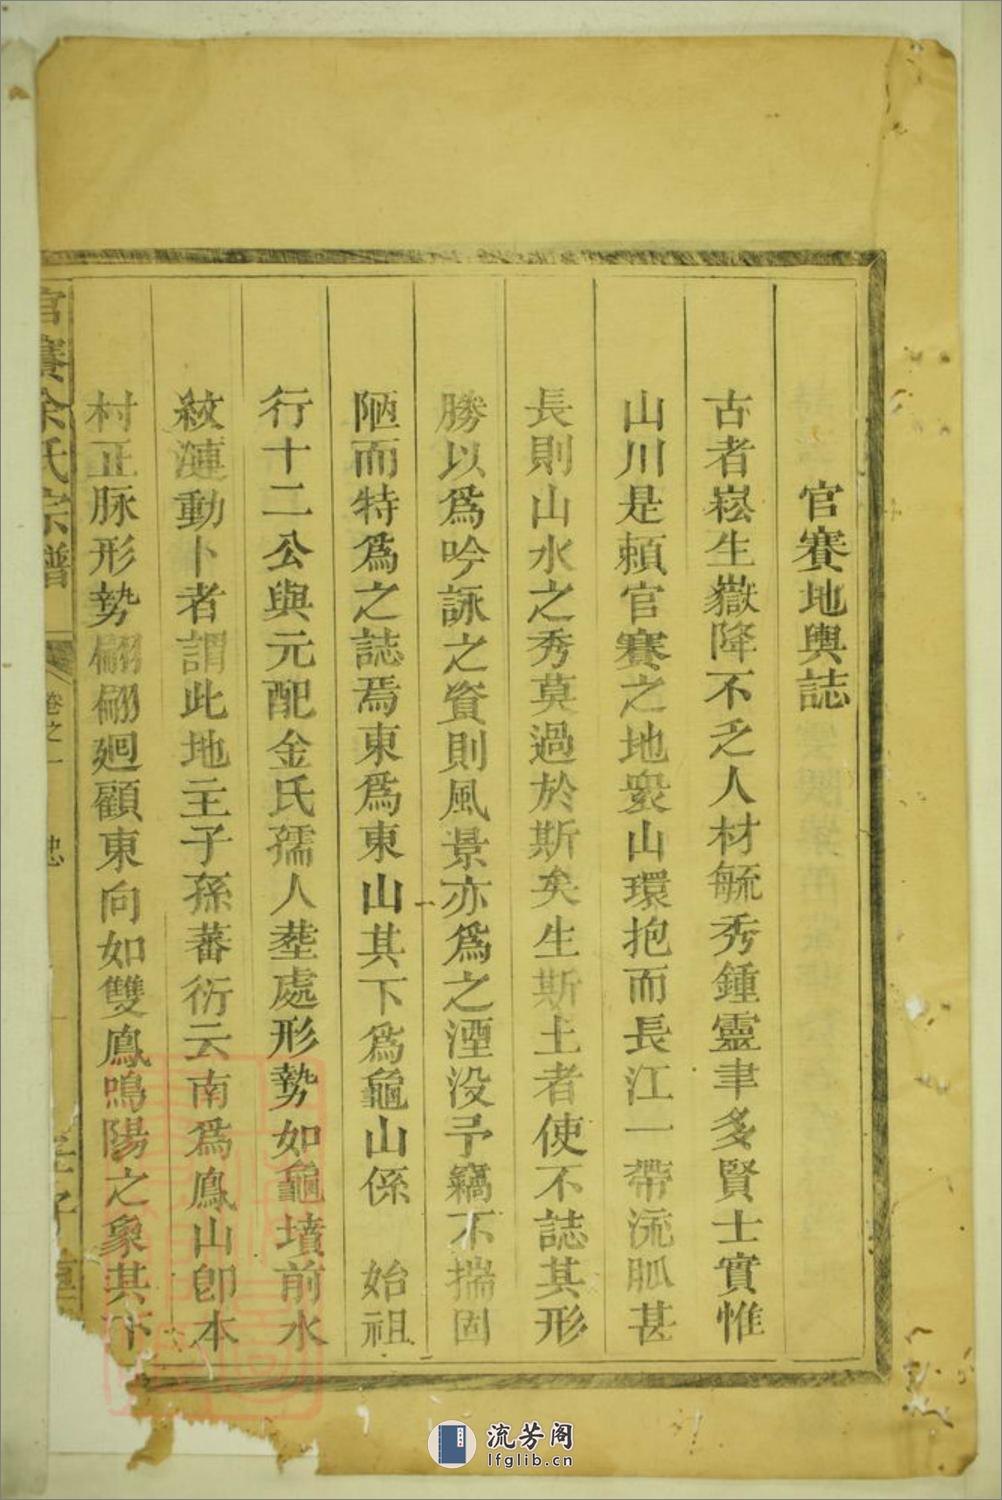 官賽地輿誌
古者崧生嶽降不乏人材毓秀鍾靈聿多賢士實惟
山川是賴官賽之地衆山環抱而長江一帶流脈甚
長則山水之秀莫過於斯矣生斯土者使不誌其形
勝以爲吟詠之資則風景亦爲之湮没予竊不揣固
陋而特爲之誌焉東爲東山其下爲龜山係　始祖
行十二公與元配金氏孺人塟處形勢如龜墳前水
紋漣動卜者謂此地主子孫蕃衍云南爲鳳山卽本
村正脉形勢翩翩廻顧東向如雙鳳鳴陽之象其下
官賽余氏宗譜
卷之一
流芳阁
lfglib.cn